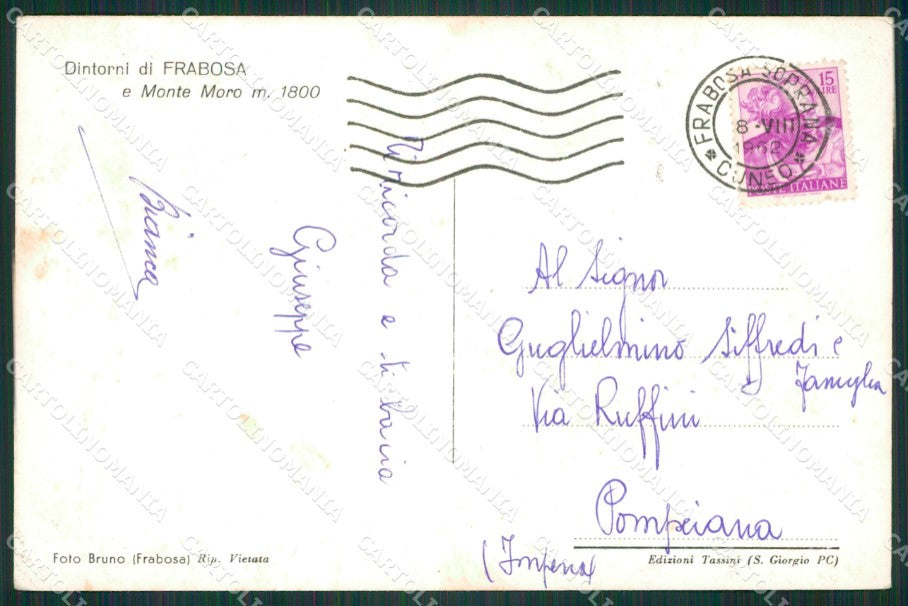 Dintorni di FRABOSA
e Monte Moro m. 1800
FRABOSA SOPRANA
8-VIII
1962
* CUNEO *
15
LIRE
POSTE ITALIANE
Ti ricorda e ti bacia
Giuseppe
Bianca
Al Signor
Guglielmino Siffredi e
Famiglia
Via Ruffini
Pompeiana
(Imperia)
Foto Bruno (Frabosa) Rip. Vietata
Edizioni Tassini (S. Giorgio PC)
CARTOLINOMANIA